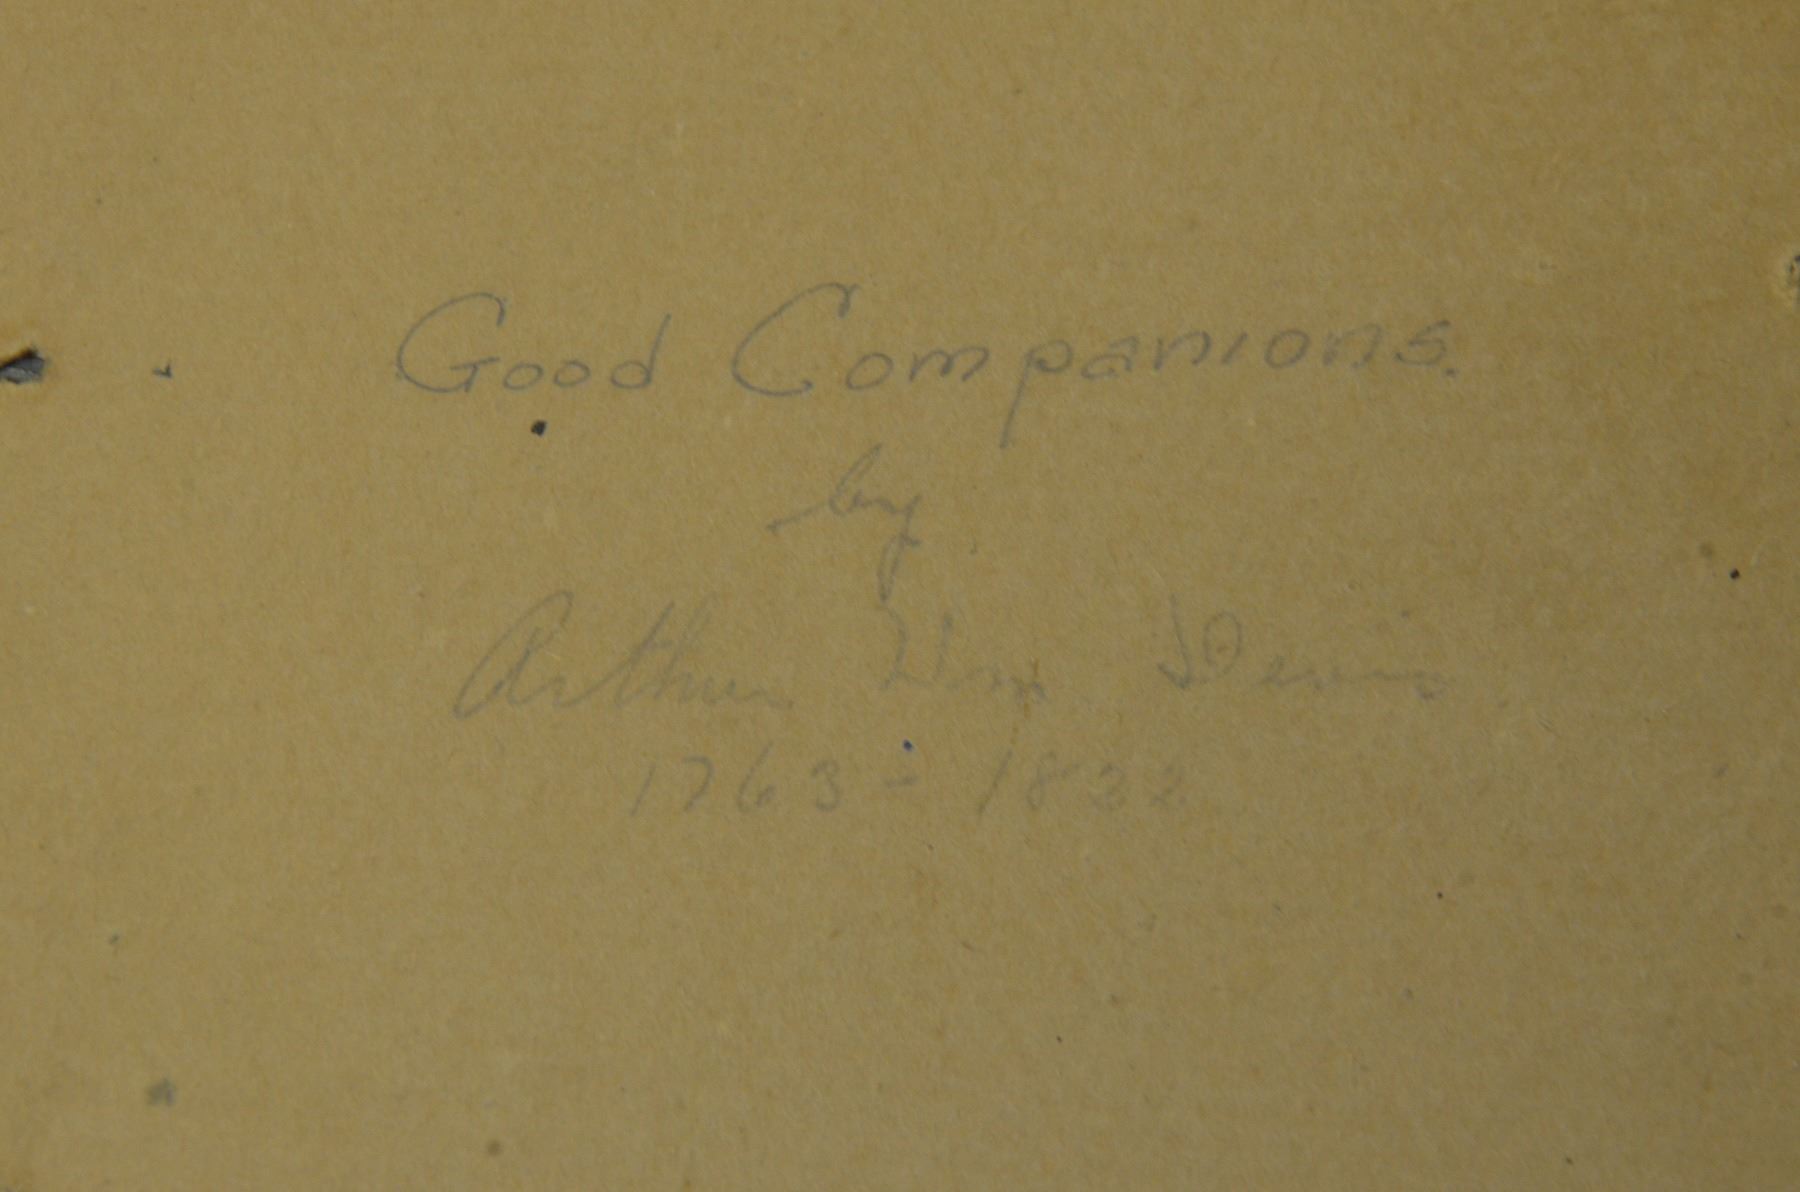 Good Companions.
by
Arthur Wm Devis
1763 - 1822